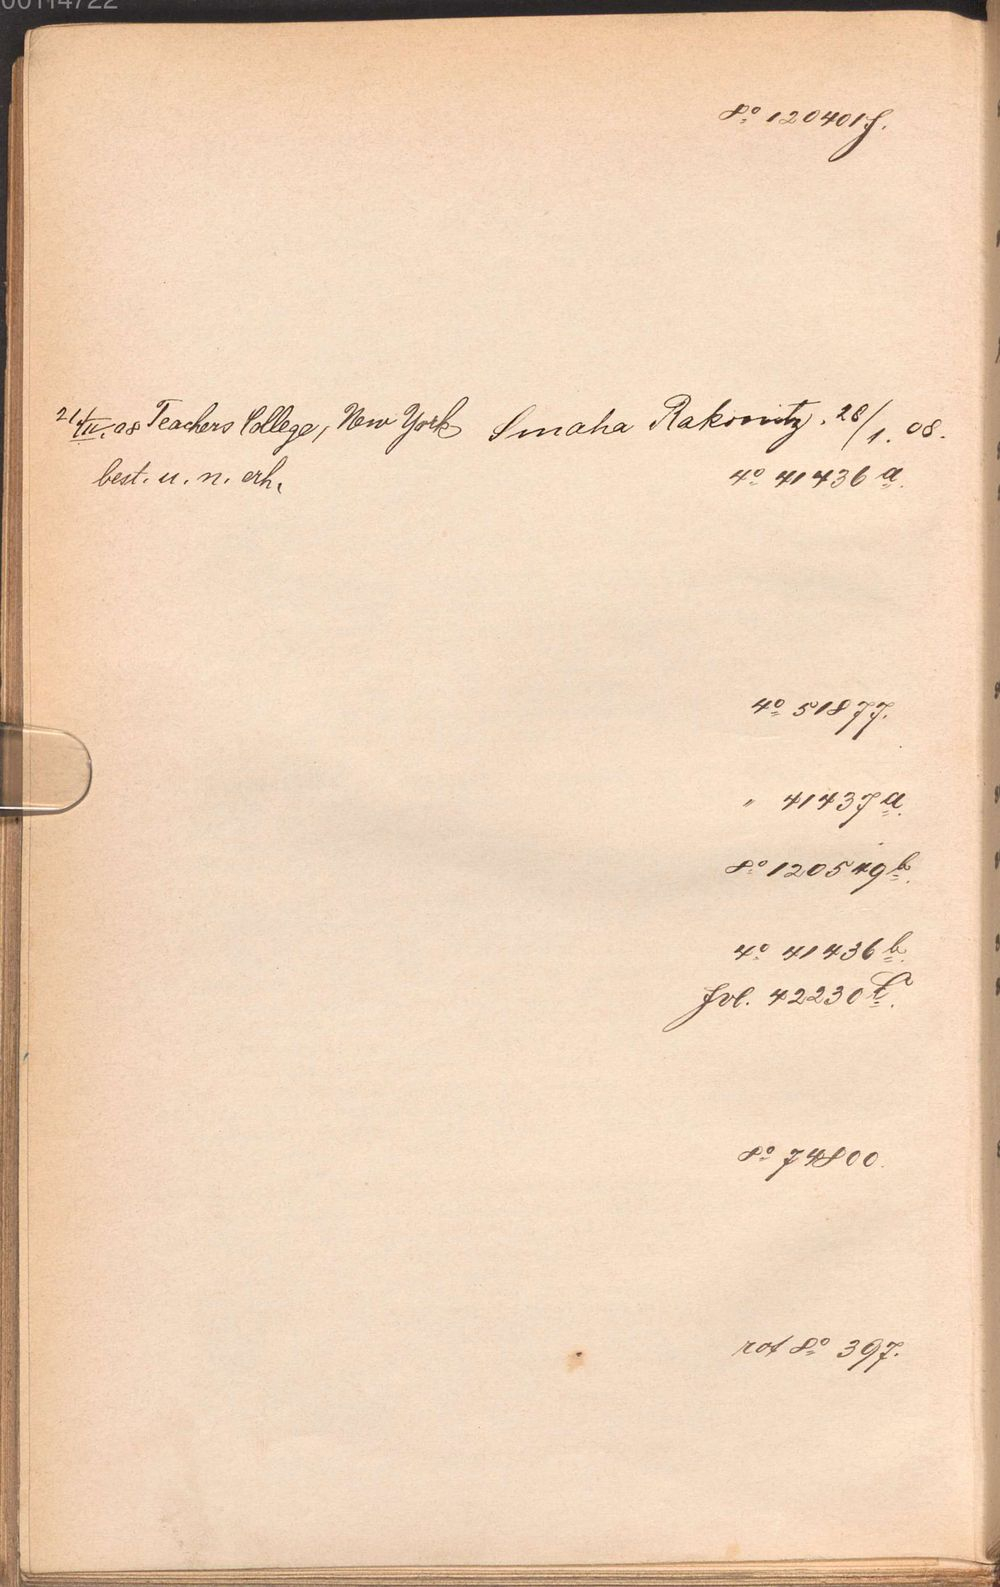 00114722
8° 120401f.
21/VII. 08 Teachers College, New York Smaha Rakonitz. 28/1. 08.
best. u. n. erh.
4° 41436 a.
4° 51877.
" 41437 a.
8° 120549 b.
4° 41436 b.
fol. 42230
8° 74800.
rot 8° 397.